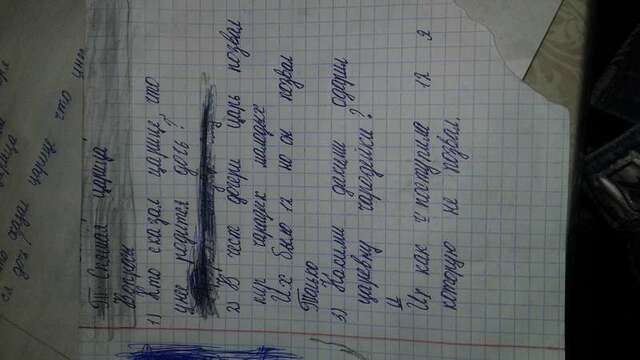 сказал царице что
Т: Спящая царица
Вопросы
1) Кто сказал царице, что
унее родится дочь?
2) В чест дочери царь позвал
пир чарадик маладых
Их было 12 но он позвал
Только
3) Какими дакими одарил
царевну чародейки?
И
Их как ч поступила 12 я
которую не позвал.